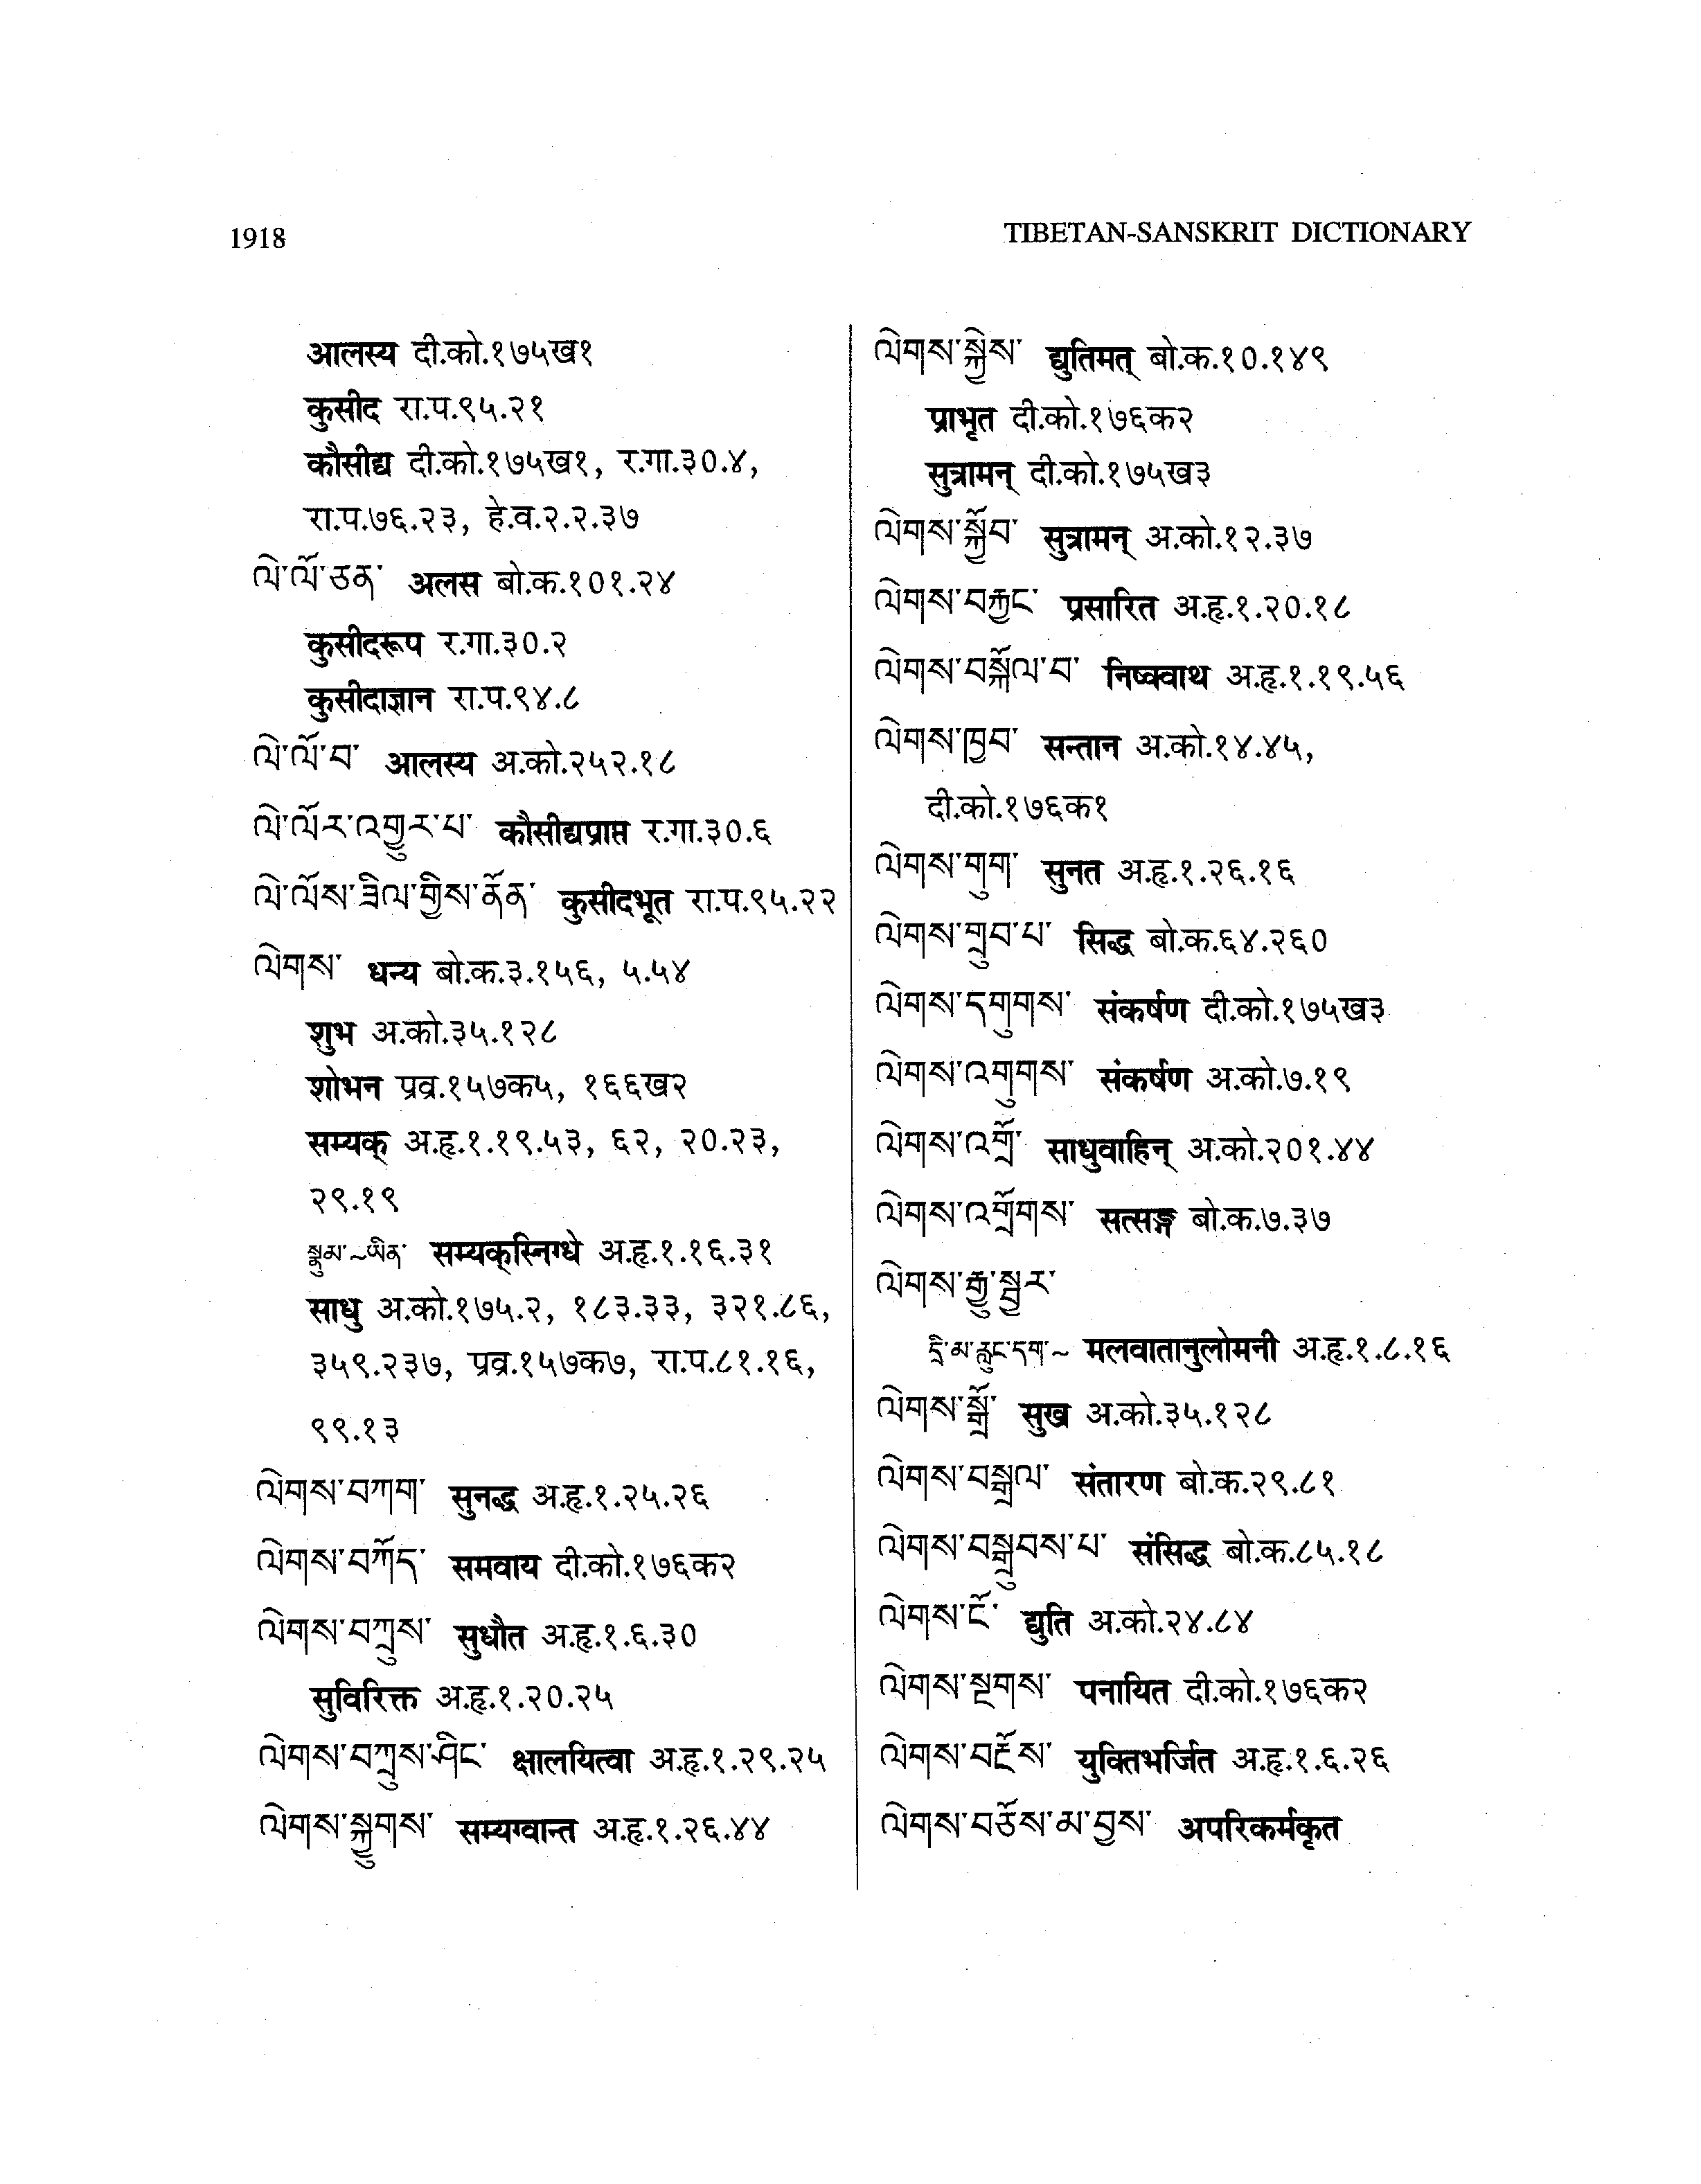 1918
TIBETAN-SANSKRIT DICTIONARY
आलस्य दी.को.१७५ख१
कुसीद रा.प.९५.२१
कौसीद्य दी.को.१७५ख१, र.गा.३०.४,
रा.प.७६.२३, हे.व.२.२.३७
ལེ་ལོ་ཅན་ अलस बो.क.१०१.२४
कुसीदरूप र.गा.३०.२
कुसीदाज्ञान रा.प.९४.८
ལེ་ལོ་བ་ आलस्य अ.को.२५२.१८
ལེ་ལོར་འགྱུར་པ་ कौसीद्यप्राप्त र.गा.३०.६
ལེ་ལོས་ཟིལ་གྱིས་ནོན་ कुसीदभूत रा.प.९५.२२
ལེགས་ धन्य बो.क.३.१५६, ५.५४
शुभ अ.को.३५.१२८
शोभन प्रव्र.१५७क५, १६६ख२
सम्यक् अ.हृ.१.१९.५३, ६२, २०.२३,
२९.१९
སྣུམ་~ཡིན་ सम्यक्स्निग्धे अ.हृ.१.१६.३१
साधु अ.को.१७५.२, १८३.३३, ३२१.८६,
३५९.२३७, प्रव्र.१५७क७, रा.प.८१.१६,
९९.१३
ལེགས་བཀག་ सुनद्ध अ.हृ.१.२५.२६
ལེགས་བཀོད་ समवाय दी.को.१७६क२
ལེགས་བཀྲུས་ सुधौत अ.हृ.१.६.३०
सुविरिक्त अ.हृ.१.२०.२५
ལེགས་བཀྲུས་ཤིང་ क्षालयित्वा अ.हृ.१.२९.२५
ལེགས་སྐྱུགས་ सम्यग्वान्त अ.हृ.१.२६.४४
ལེགས་སྐྱེས་ द्युतिमत् बो.क.१०.१४९
प्राभृत दी.को.१७६क२
सुत्रामन् दी.को.१७५ख३
ལེགས་སྐྱོབ་ सुत्रामन् अ.को.१२.३७
ལེགས་བརྐྱང་ प्रसारित अ.हृ.१.२०.१८
ལེགས་བསྐོལ་བ་ निष्क्वाथ अ.हृ.१.१९.५६
ལེགས་ཁྱབ་ सन्तान अ.को.१४.४५,
दी.को.१७६क१
ལེགས་གུག་ सुनत अ.हृ.१.२६.१६
ལེགས་གྲུབ་པ་ सिद्ध बो.क.६४.२६०
ལེགས་དགུགས་ संकर्षण दी.को.१७५ख३
ལེགས་འགུགས་ संकर्षण अ.को.७.१९
ལེགས་འགྲོ་ साधुवाहिन् अ.को.२०१.४४
ལེགས་འགྲོགས་ सत्सङ्ग बो.क.७.३७
ལེགས་རྒྱུ་སྦྱར་
དྲི་མ་རླུང་དག་~ मलवातानुलोमनी अ.हृ.१.८.१६
ལེགས་སྒྲོ་ सुख अ.को.३५.१२८
ལེགས་བསྒྲལ་ संतारण बो.क.२९.८१
ལེགས་བསྒྲུབས་པ་ संसिद्ध बो.क.८५.१८
ལེགས་ངོ་ द्युति अ.को.२४.८४
ལེགས་སྔགས་ पनायित दी.को.१७६क२
ལེགས་བརྔོས་ युक्तिभर्जित अ.हृ.१.६.२६
ལེགས་བཅོས་མ་བྱས་ अपरिकर्मकृत